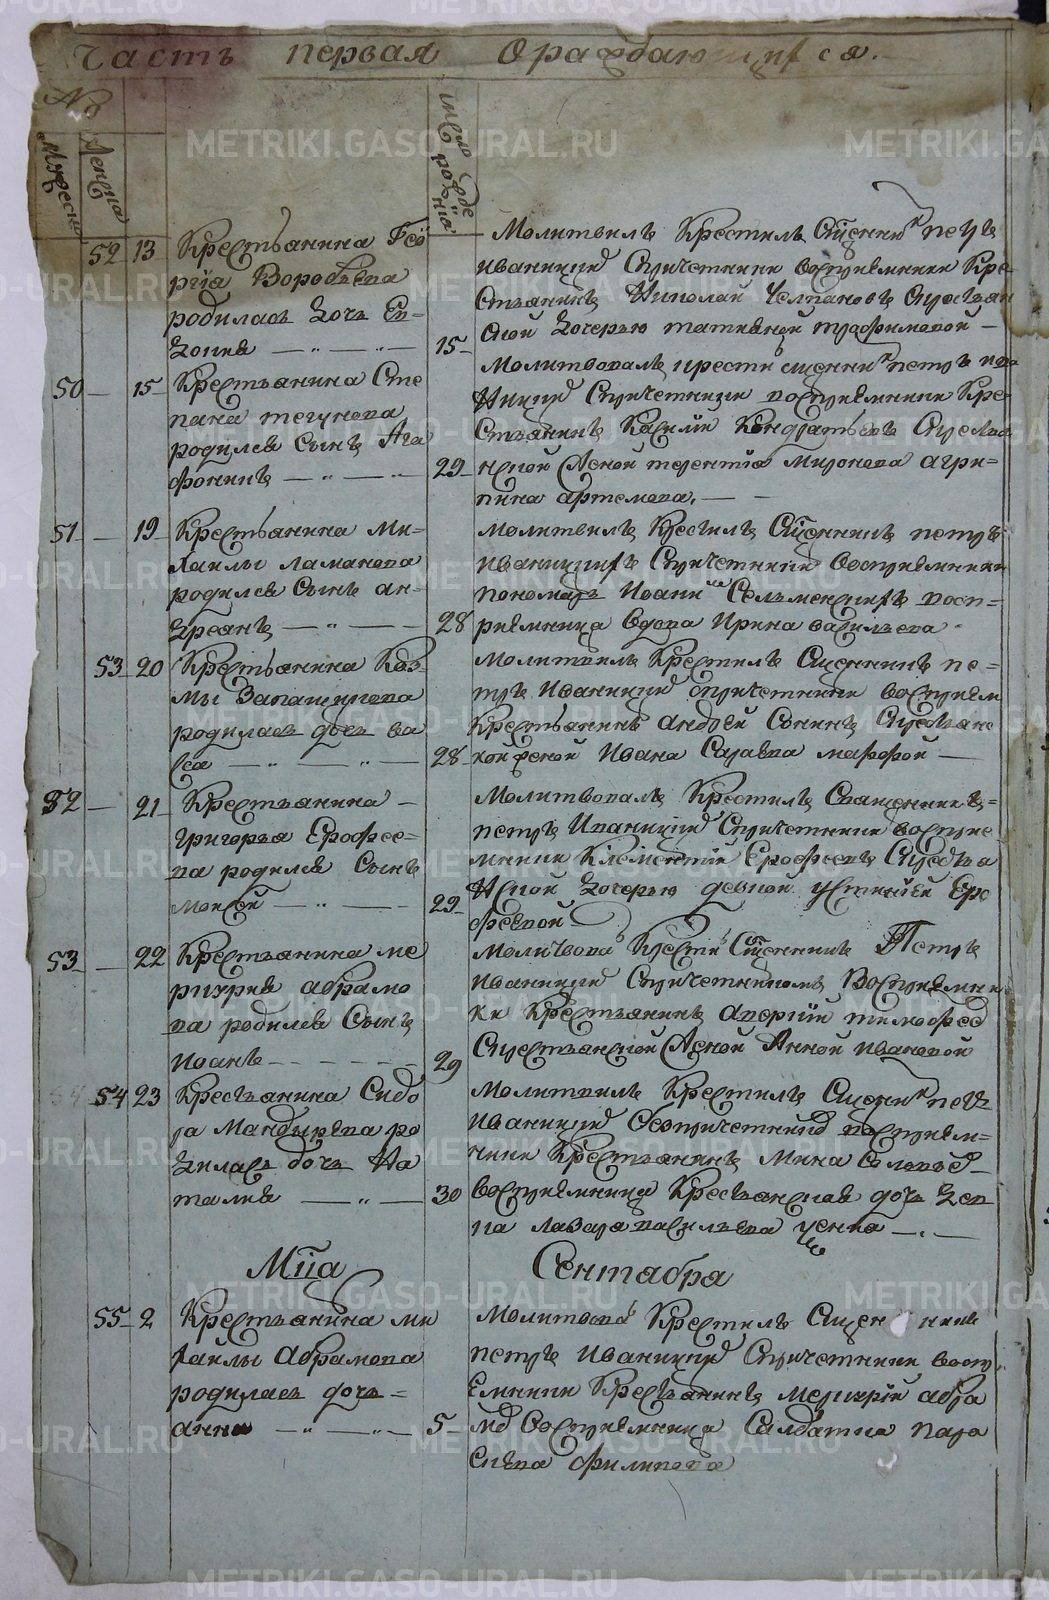 Часть первая О раждающихся.
№
Мужеска
Женска
число рожде нїя
52 13 Крестьянина Геѡ
ргїа Воробьева
родилась дочь Ев-
докиѣ
15
Молитвилъ Крестилъ Сщенни къ петръ
иваницкїй Спричетники восприемники Кре
стьянинъ Николай Челпановъ Скрестьян
ской дочерью татияной трофимовой
50 15 Крестьянина Сте
пана тегунева
родился Сынъ Ага
фонникъ
29
Молитвовалъ крести сщенникъ петръ ива
ницкїй Спричетники восприемники Кре
стьянинъ Василїй Кондратьевъ Скрестья
нской женой терентїа миронова агри-
пина артемева.
51 19 Крестьянина ми-
хаилы ламанова
родился Сынъ ан-
дреанъ
28
молитвилъ Крестилъ Сщенникъ петръ
иваницкихъ Спричетники восприемники
пономарь Иоанн Селъменскихъ восп-
риемница вдова Ирина васильева
53 20 Крестьянина Коз-
мы Запащикова
родилась дочь ва
са
28
молитвилъ Крестилъ Сщенникъ пе-
тръ Иваницкїй спричетники восприем
Крестьянинъ андрей Сонинъ Скрестьянс
кой женой Ивана Сараева марфой
52 21 Крестьянина
григорья Ерофее-
ва родился Сынъ
моисей
29
Молитвовалъ Крестилъ Священникъ
петръ Иваницкїй Спричетники восприе
мники Климентїй Ерофеевъ Скрестья
нской дочерью девкой устинией Еро
феевой
53 22 Крестьянина ме
ркурия абрамо
ва родился Сынъ
иоанъ
29
молитвова Крести Сщенникъ Петръ
иваницкїй Спричетникомъ Восприемни
ки Крестьянинъ аверкїи тимофее
Скрестьянской женой Анной ивановой
54 23 Кресьянина Сидо
ра Мандырева ро
дилась дочь На
талия
30
Молитвилъ Крестилъ Сщенни къ петръ
иваницкїй Соспричетники восприем-
ники Крестьянинъ Мина Соловье
восприемница Кресьянская дочь дев
ка лазаря васильева
Мца Сентабра
55 2 Крестьянина ми
хайлы Абрамова
родилась дочь
анна
5
молитвова Крестилъ Сщен никъ
петръ Иваницкїй Спричетники воспр
емники Крестьянинъ меркурїй абра
мо Восприемница Салдатка пара
скева филипова
METRIKI.GASO-URAL.RU